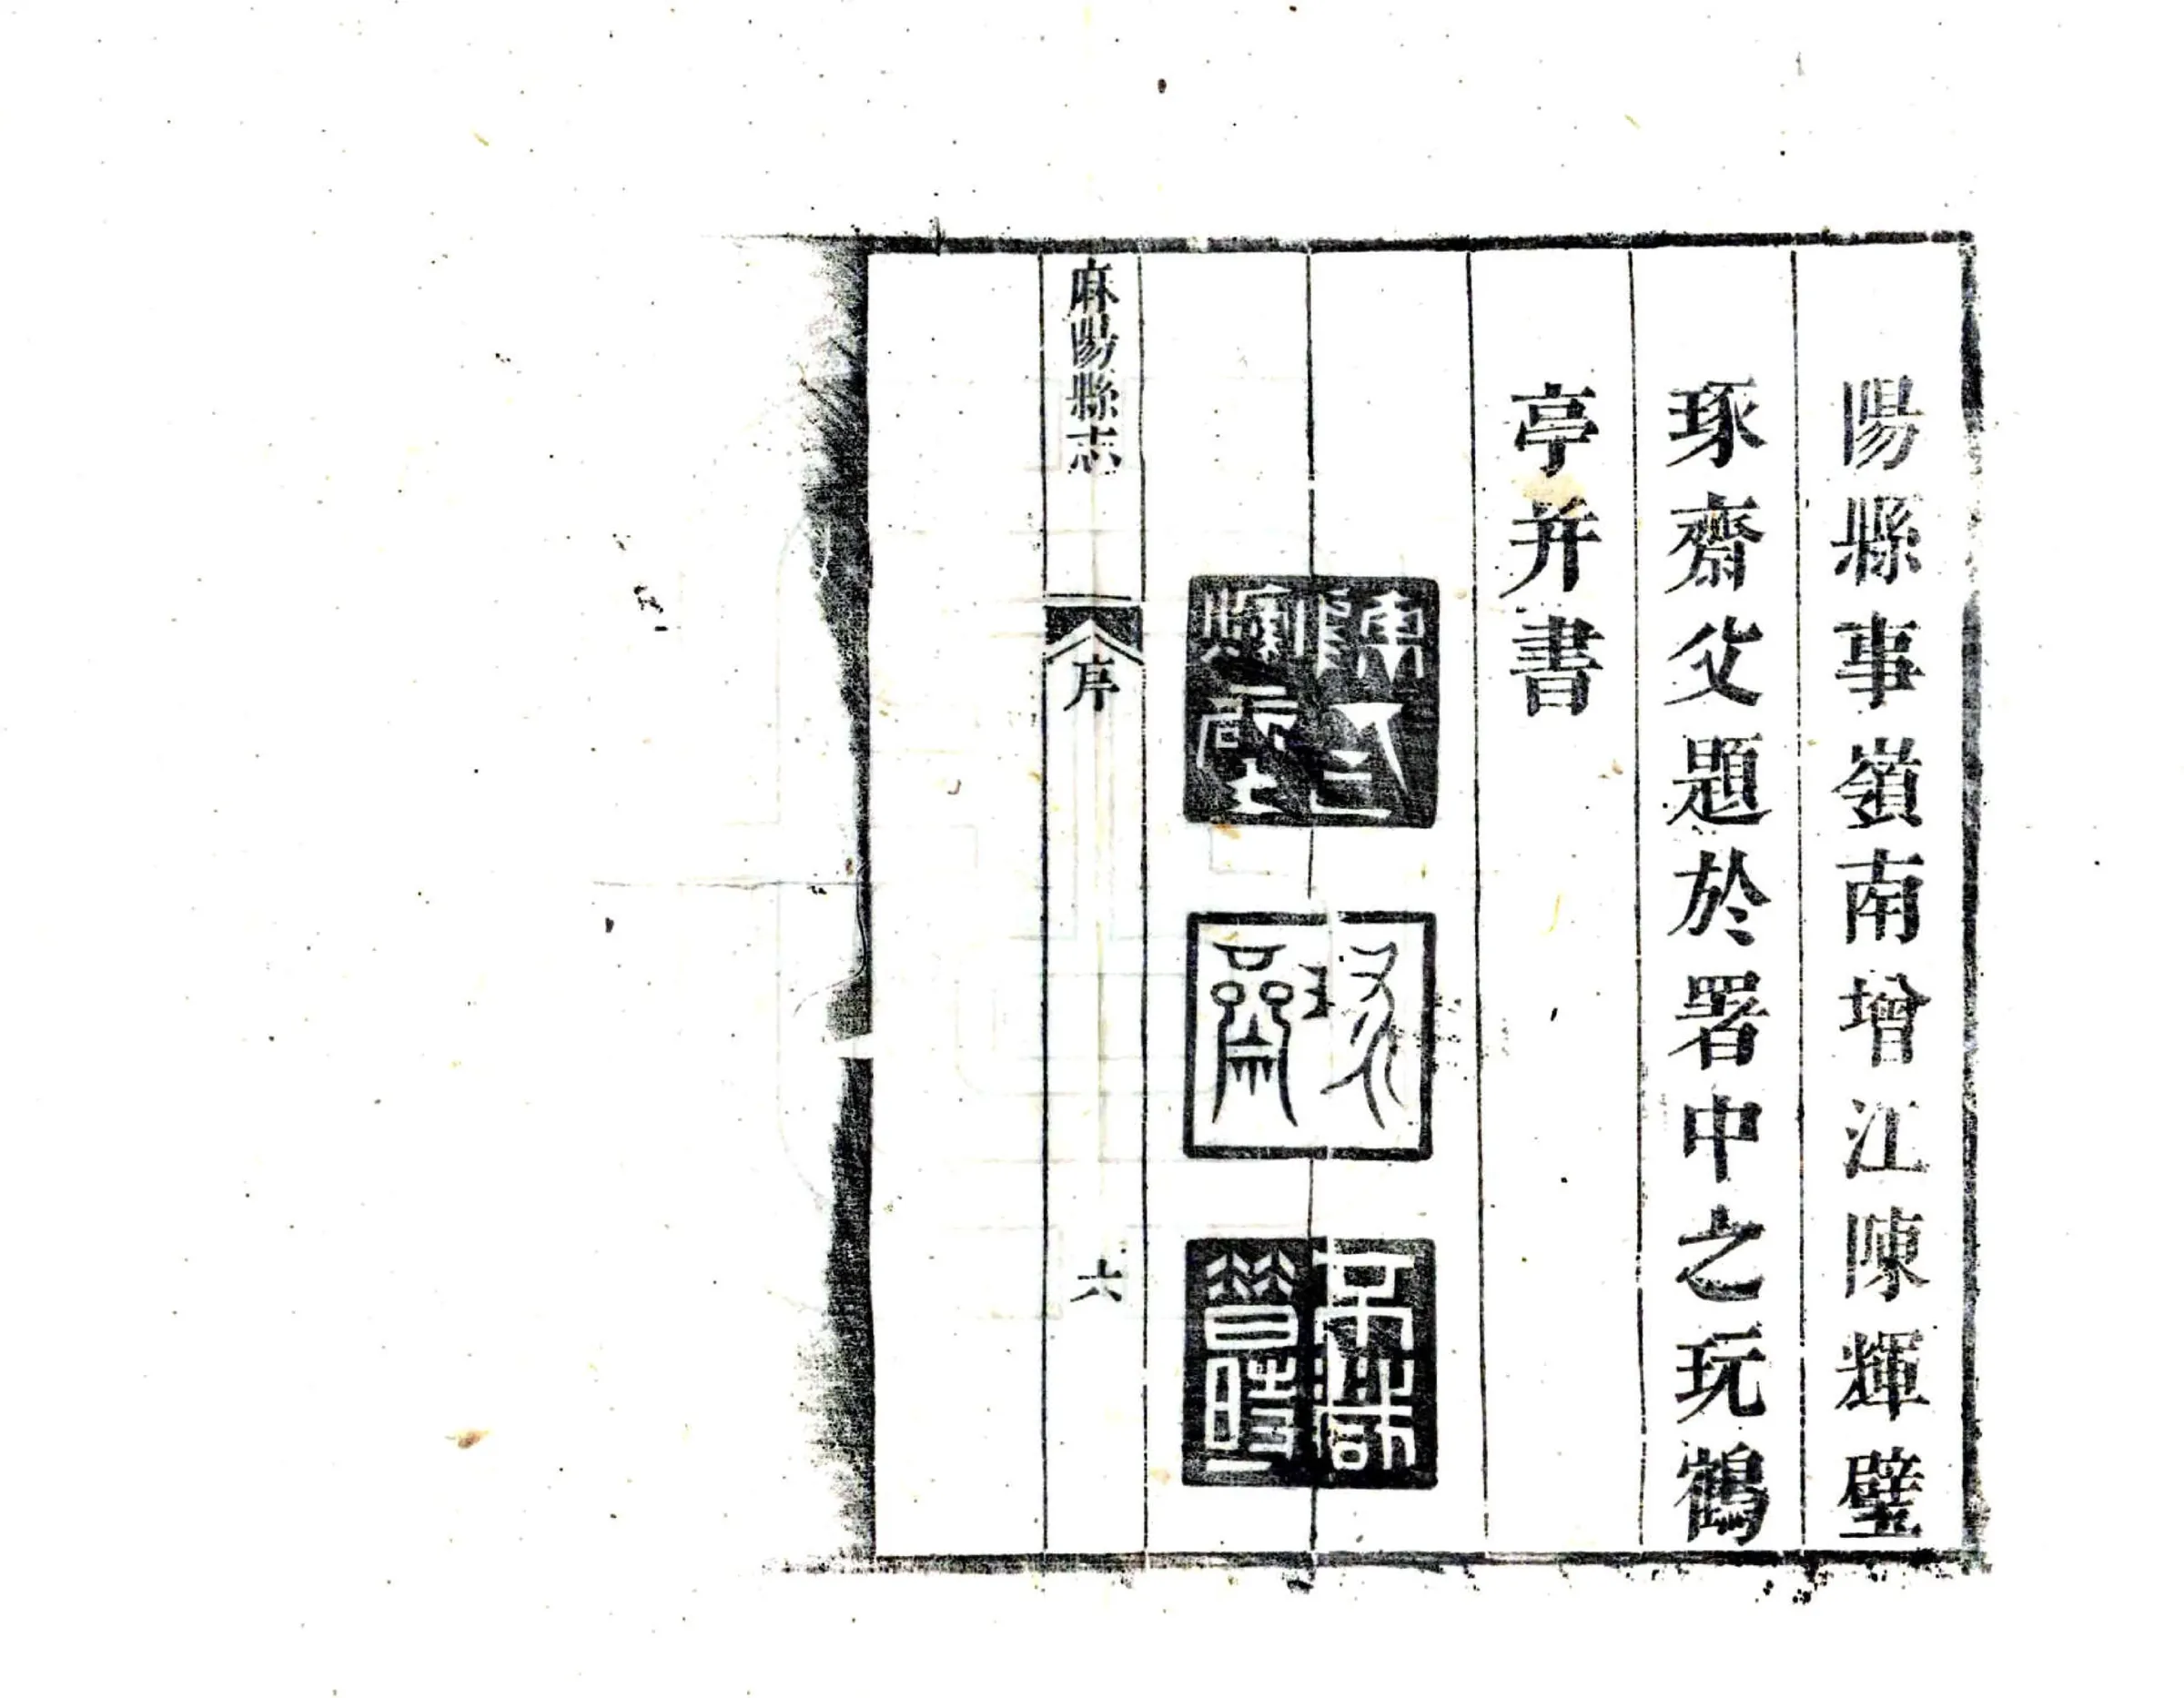 陽縣事嶺南增江陳輝璧
琢齋父題於署中之玩鶴
亭并書
琢齋
麻陽縣志
序
六